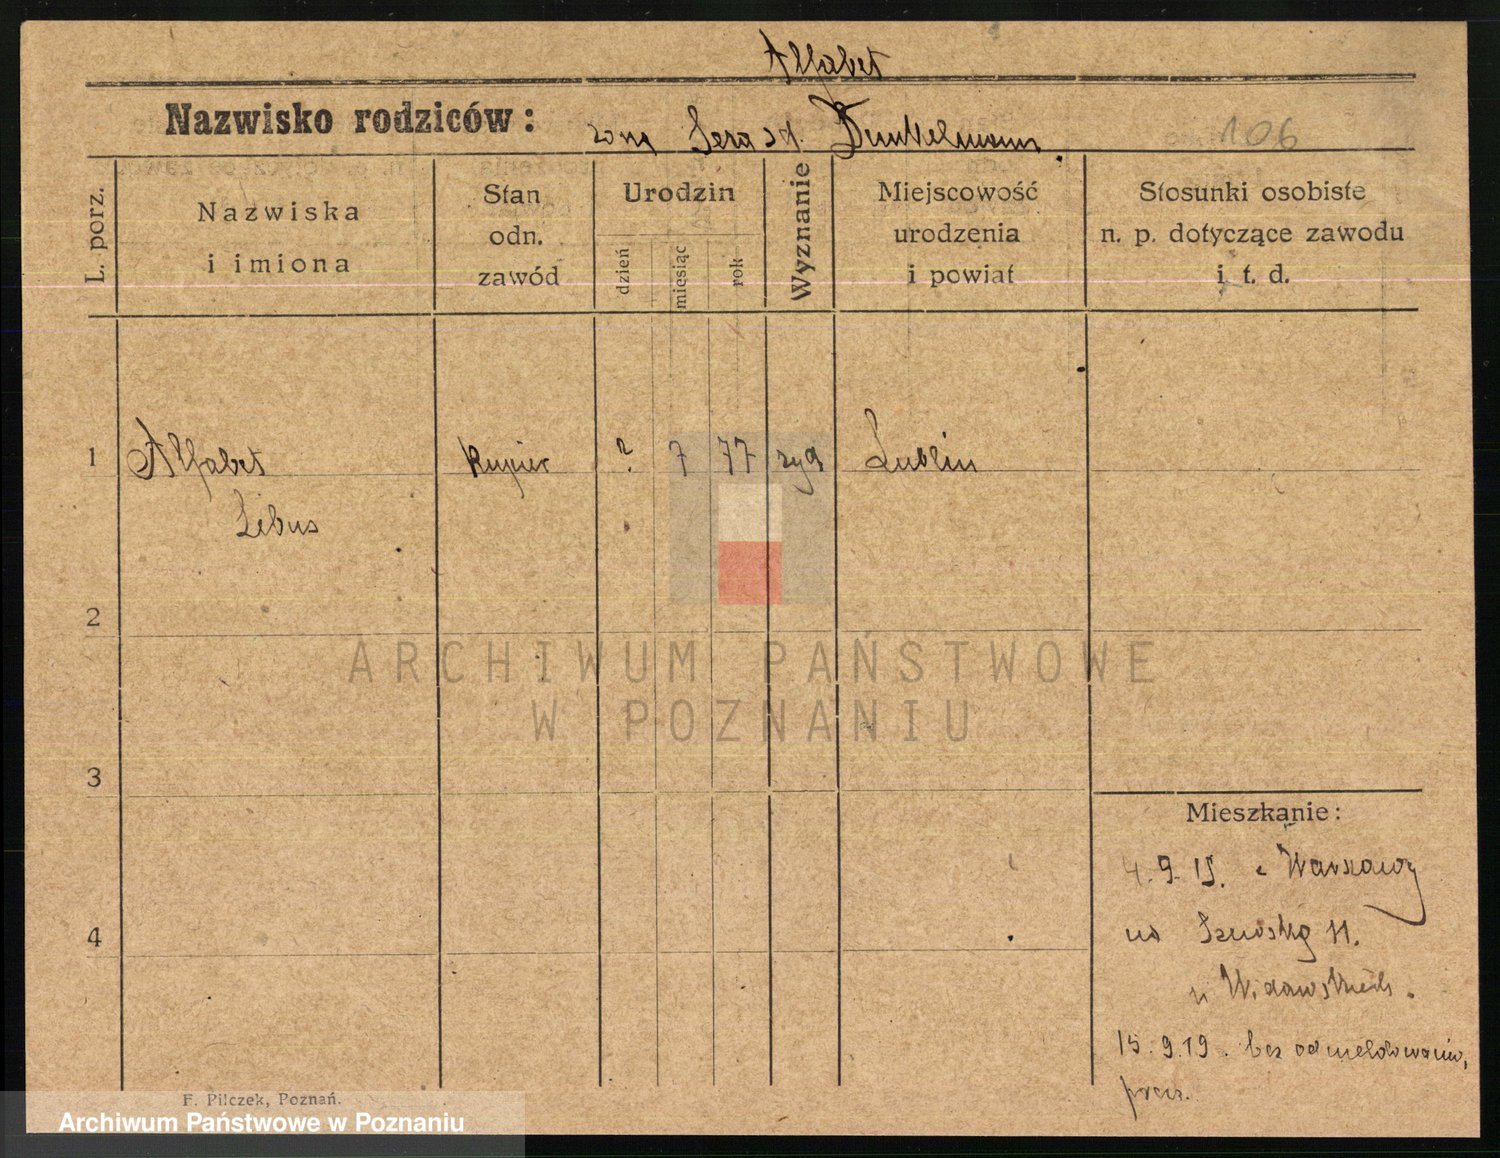 Alfabet
Nazwisko rodziców: żona Sera zd. Dunkelmann. 106
L. porz.
Nazwiska
i imiona
Stan
odn.
zawód
Urodzin
dzień
miesiąc
rok
Wyznanie
Miejscowość
urodzenia
i powiat
Stosunki osobiste
n. p. dotyczące zawodu
i t. d.
1 Alfabet kupiec ? 7 77 żyd Lublin
Lebus
2
ARCHIWUM PAŃSTWOWE
W POZNANIU
3
Mieszkanie:
4.9.19. z Warszawy
4
na 11.
u
15.9.19. bez odmeldowania,
F. Pilczek, Poznań.
Archiwum Państwowe w Poznaniu